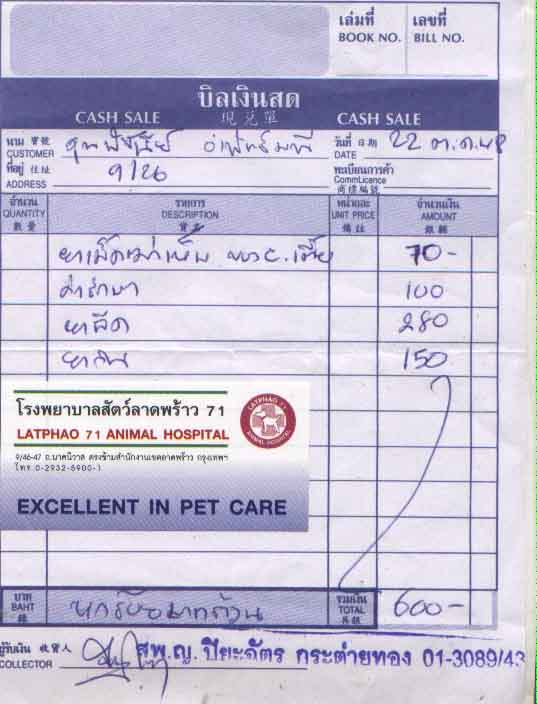 เล่มที่ เลขที่
BOOK NO. BILL NO.
บิลเงินสด
CASH SALE 現兌單 CASH SALE
นาม 寶號 วันที่ 日期 22 ต.ค. 48
CUSTOMER DATE
ที่อยู่ 住址 9/26 ทะเบียนการค้า
ADDRESS CommLicence
商標編號
จำนวน รายการ หน่วยละ จำนวนเงิน
QUANTITY DESCRIPTION UNIT PRICE AMOUNT
數量 貨名 價 銀額
70-
ค่ารักษา 100
ยาฉีด 280
150
โรงพยาบาลสัตว์ลาดพร้าว 71
LATPHAO 71 ANIMAL HOSPITAL
LATPHAO 71
ANIMAL HOSPITAL
9/46-47 ถ.นาคนิวาส ตรงข้ามสำนักงานเขตลาดพร้าว กรุงเทพฯ
โทร.0-2932-5900-1
EXCELLENT IN PET CARE
บาท หกร้อยบาทถ้วน รวมเงิน 600-
BAHT TOTAL
銖 共銀
ผู้รับเงิน 收貨人 สพ.ญ.ปิยะฉัตร กระต่ายทอง 01-3089/43
COLLECTOR